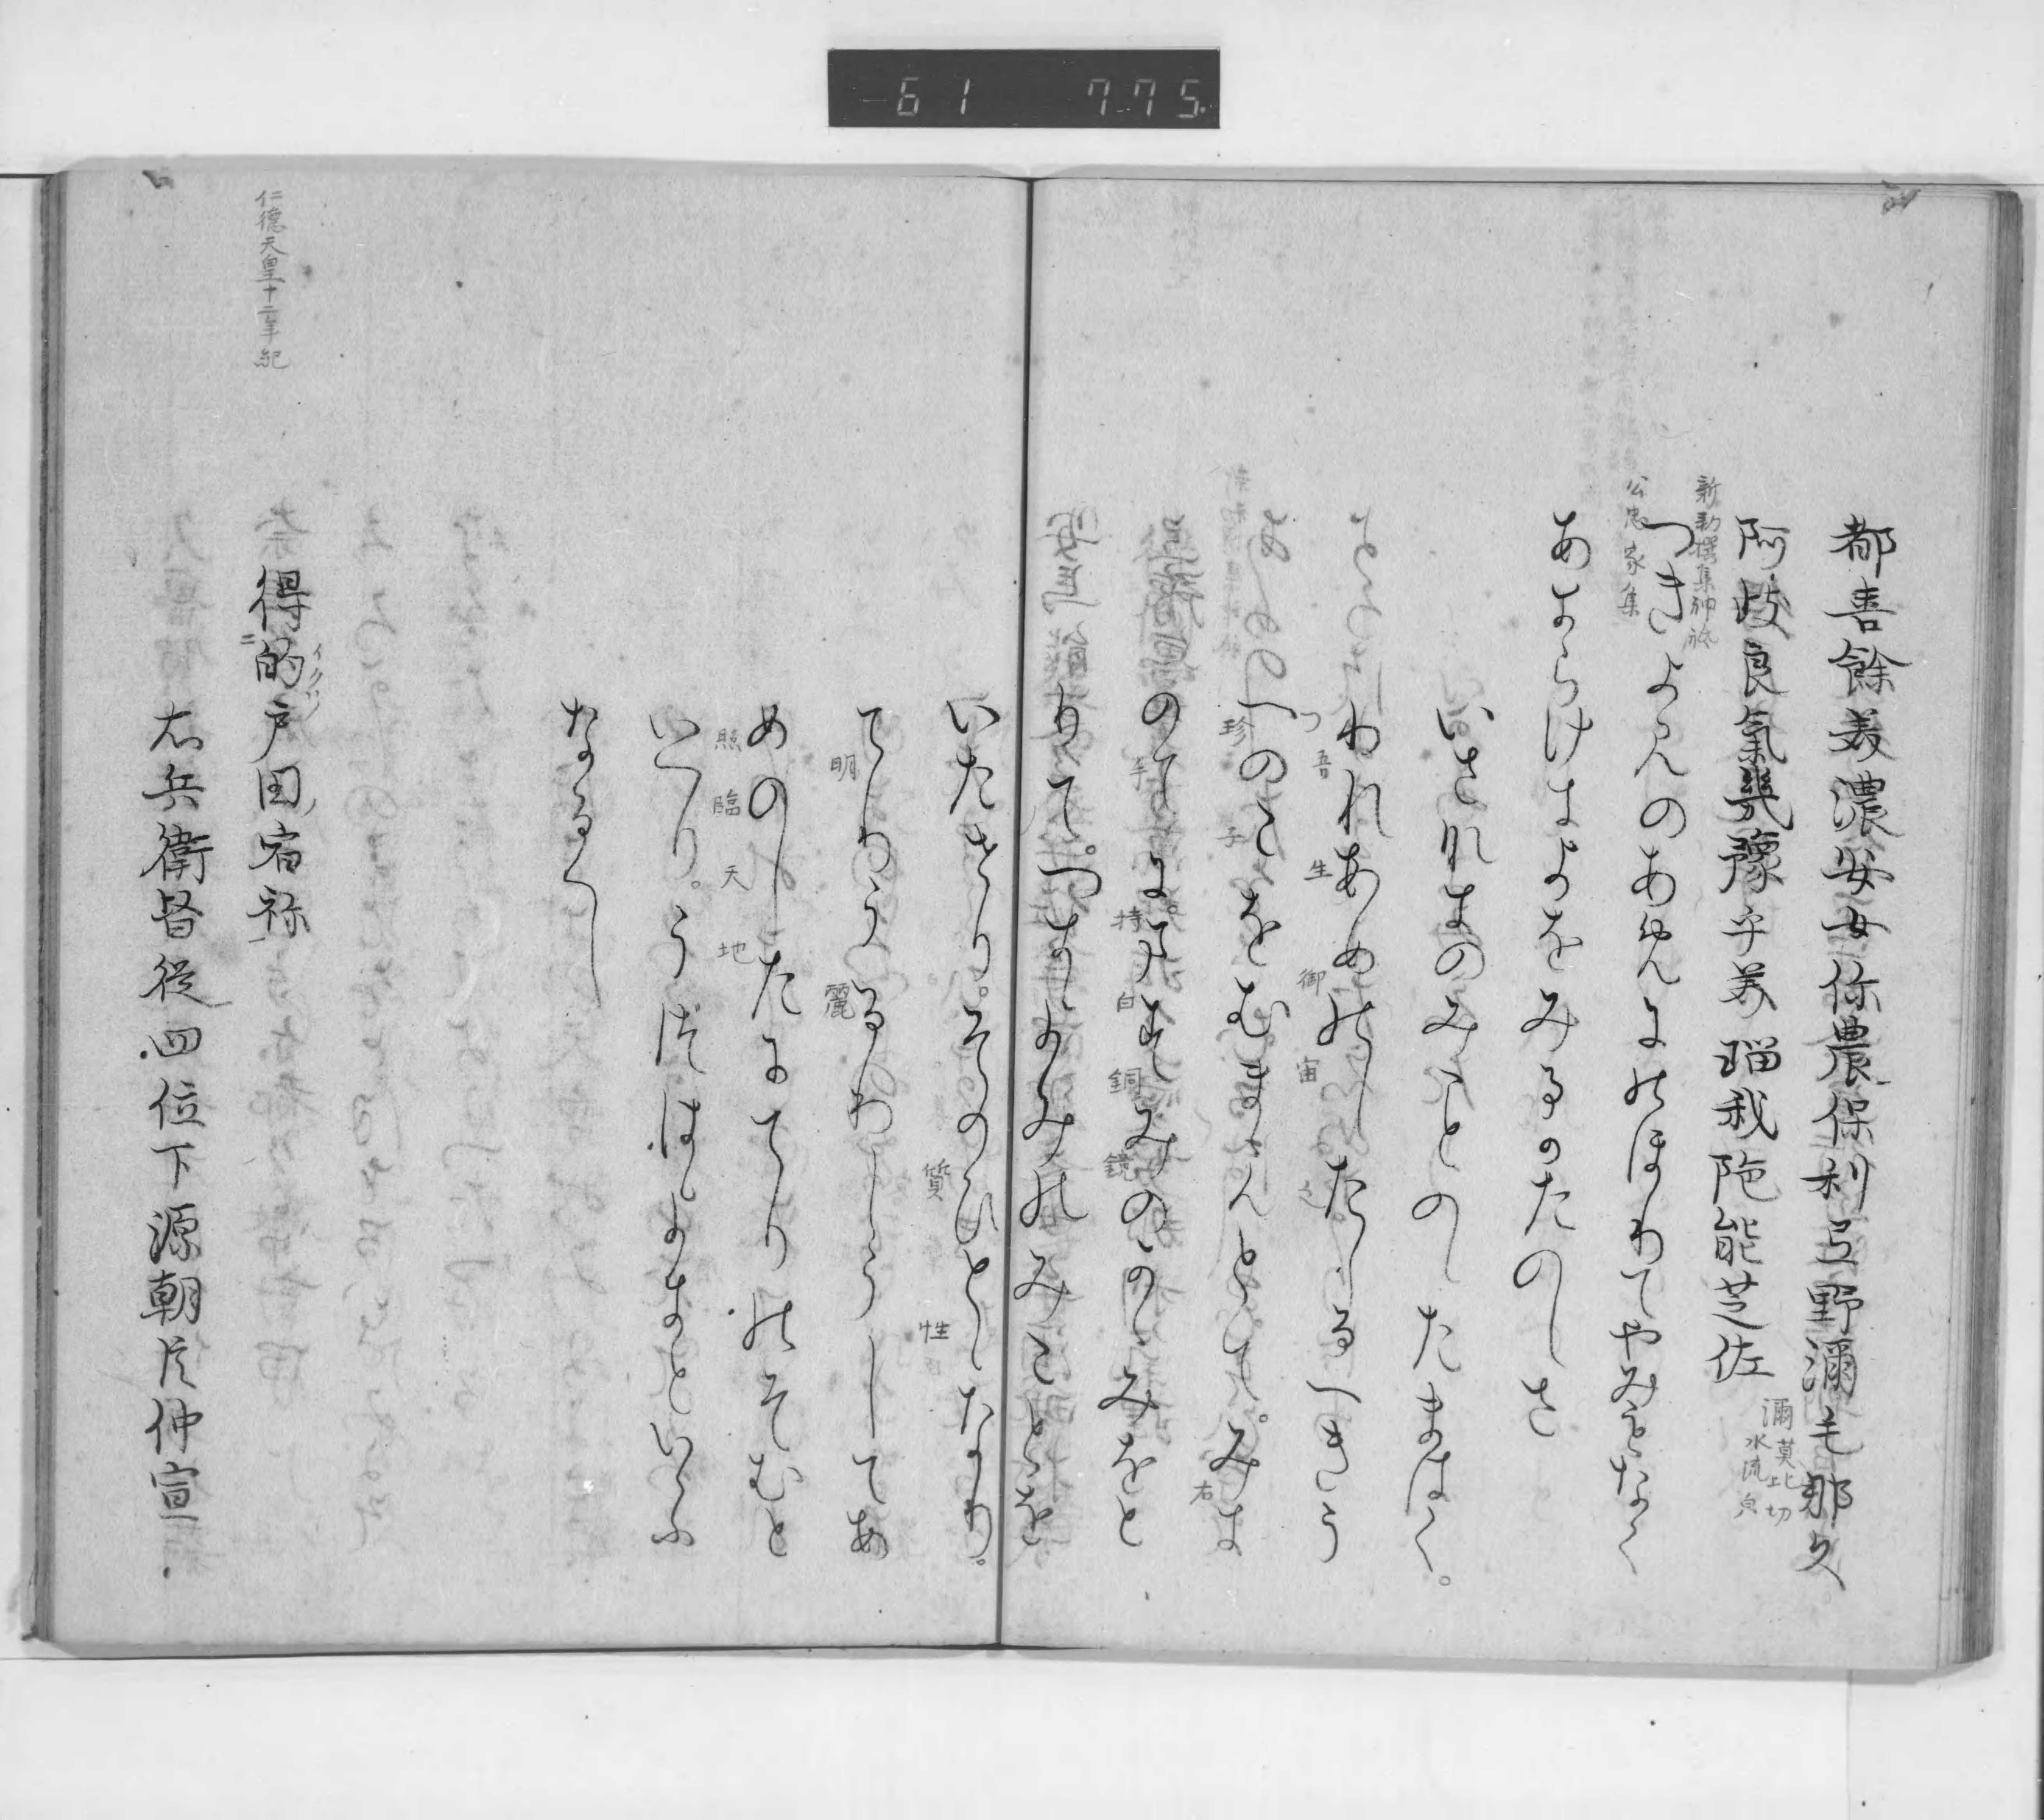 61 775
都善餘美濃安女你農保利弖野瀰毛那久
阿岐良氣幾豫乎美瑠我陁能芝佐
瀰莫比切
水流皃
新勅撰集神祇
つきよみのあめにのほりてやみもなく
公忠家集
あきらけきよをみるかたのしさ
いさなきのみことのたまはく。
われあめのしたしるへきう
吾 生 御 宙
つのみこをむまんとて。みき
珍 子 右
のてに。ますみのかゝみをと
手 持 白 銅 鏡
りて。つきよみのみことを
いたせり。そのひとゝなり。
質 性
てりうるわしうしてあ
明 麗
めのしたにてりのそむと
照 臨 天 地
いへり。うけはしきまといふ
なるへし
仁德天皇十二年紀
得的戸田宿祢
ニ イクハノ
右兵衛督従四位下源朝臣仲宣